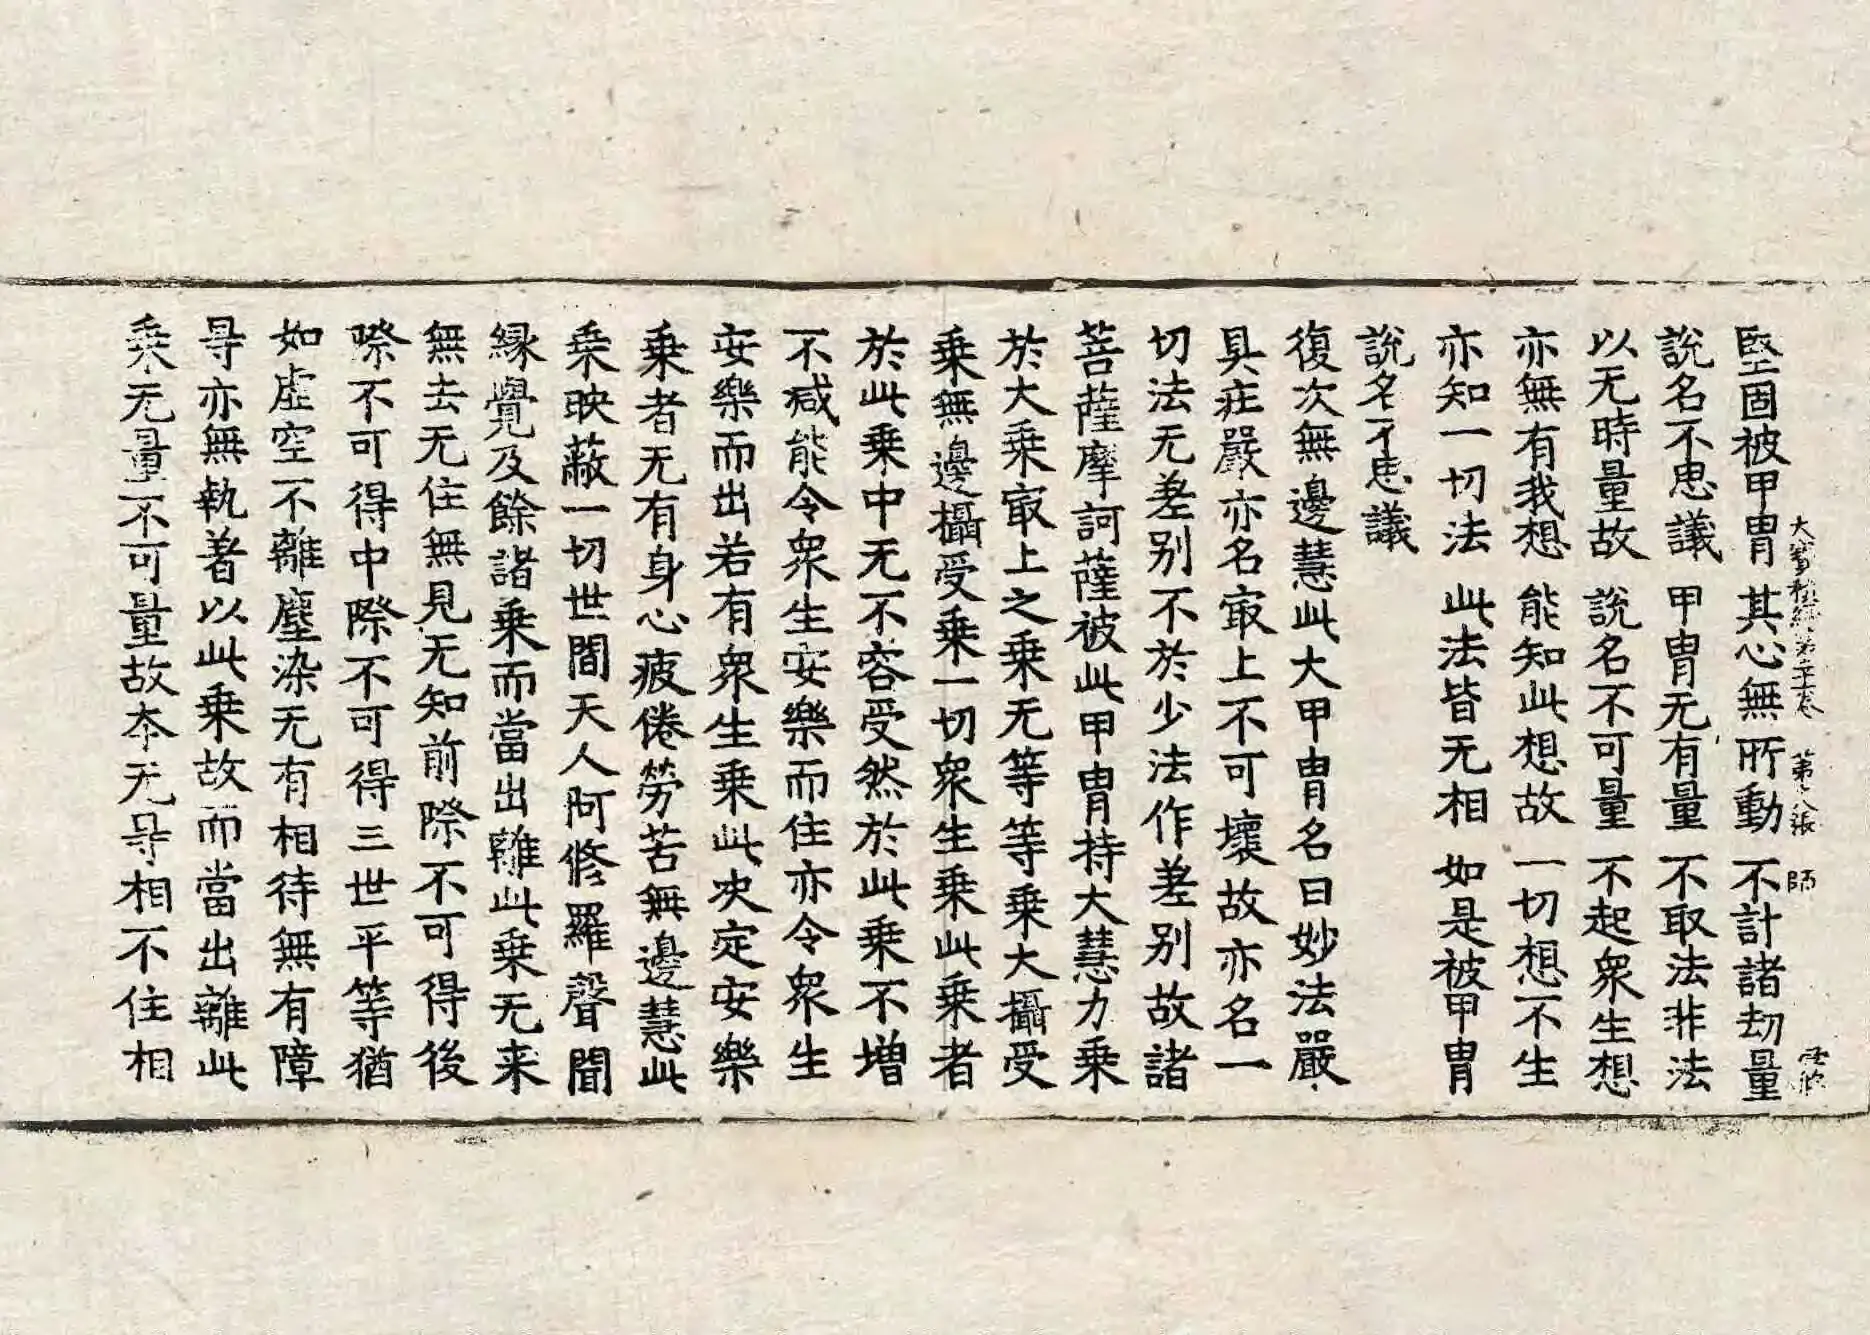 大寶積經第二十一卷 第八張 師
堅固被甲冑 其心無所動 不計諸劫量
說名不思議 甲冑无有量 不取法非法
以无時量故 說名不可量 不起衆生想
亦無有我想 能知此想故 一切想不生
亦知一切法 此法皆无相 如是被甲冑
說名不思議
復次無邊慧此大甲冑名曰妙法嚴
具莊嚴亦名㝡上不可壞故亦名一
切法无差别不於少法作差别故諸
菩薩摩訶薩被此甲冑持大慧力乘
於大乘㝡上之乘无等等乘大攝受
乘無邊攝受乘一切衆生乘此乘者
於此乘中无不容受然於此乘不增
不减能令衆生安樂而住亦令衆生
安樂而出若有衆生乘此决定安樂
乘者无有身心疲倦勞苦無邊慧此
乘映蔽一切世間天人阿修羅聲聞
縁覺及餘諸乘而當出離此乘无来
無去无住無見无知前際不可得後
際不可得中際不可得三世平等猶
如虛空不離塵染无有相待無有障
㝵亦無執著以此乘故而當出離此
乘无量不可量故夲无㝵相不住相